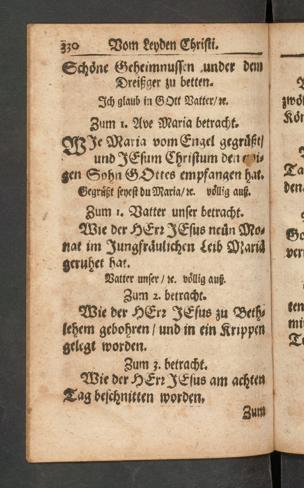 330 Vom Leyden Christi.
Schöne Geheimnussen under dem
Dreißger zu betten.
Jch glaub in GOtt Vatter/ ꝛc.
Zum 1. Ave Maria betracht.
WJe Maria vom Engel gegrüßt/
und JEsum Christum den ewi-
gen Sohn GOttes empfangen hat.
Gegrüßt seyest du Maria/ ꝛc. völlig auß.
Zum 1. Vatter unser betracht.
Wie der HErr JEsus neün Mo-
nat im Jungfräulichen Leib Mariä
geruhet hat.
Vatter unser / ꝛc. völlig auß.
Zum 2. betracht.
Wie der HErr JEsus zu Beth-
lehem gebohren / und in ein Krippen
gelegt worden.
Zum 3. betracht.
Wie der HErr JEsus am achten
Tag beschnitten worden.
Zum